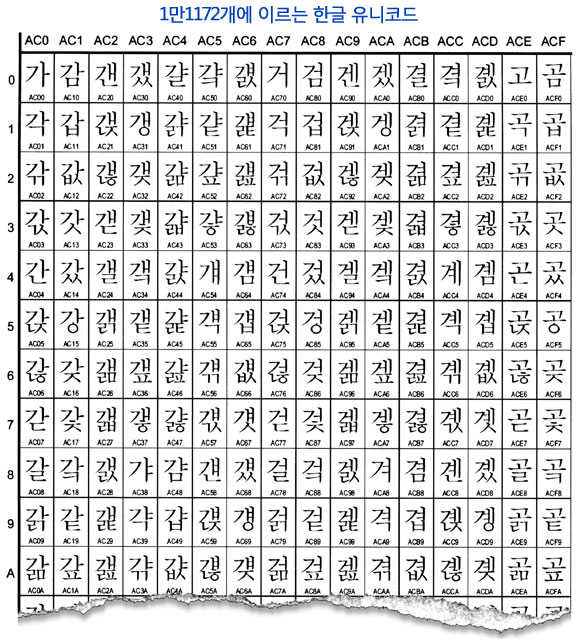 1만1172개에 이르는 한글 유니코드
AC0 AC1 AC2 AC3 AC4 AC5 AC6 AC7 AC8 AC9 ACA ACB ACC ACD ACE ACF
0 가 감 갠 갰 걀 걐 걠 거 검 겐 겠 결 곀 곐 고 곰
AC00 AC10 AC20 AC30 AC40 AC50 AC60 AC70 AC80 AC90 ACA0 ACB0 ACC0 ACD0 ACE0 ACF0
1 각 갑 갡 갱 걁 걑 걡 걱 겁 겑 겡 겱 곁 곑 곡 곱
AC01 AC11 AC21 AC31 AC41 AC51 AC61 AC71 AC81 AC91 ACA1 ACB1 ACC1 ACD1 ACE1 ACF1
2 갂 값 갢 갲 걂 걒 걢 걲 겂 겒 겢 겲 곂 곒 곢 곲
AC02 AC12 AC22 AC32 AC42 AC52 AC62 AC72 AC82 AC92 ACA2 ACB2 ACC2 ACD2 ACE2 ACF2
3 갃 갓 갣 갳 걃 걓 걣 걳 것 겓 겣 겳 곃 곓 곣 곳
AC03 AC13 AC23 AC33 AC43 AC53 AC63 AC73 AC83 AC93 ACA3 ACB3 ACC3 ACD3 ACE3 ACF3
4 간 갔 갤 갴 걄 걔 걤 건 겄 겔 겤 겴 계 곔 곤 곴
AC04 AC14 AC24 AC34 AC44 AC54 AC64 AC74 AC84 AC94 ACA4 ACB4 ACC4 ACD4 ACE4 ACF4
5 갅 강 갥 갵 걅 걕 걥 걵 겅 겕 겥 겵 곅 곕 곥 공
AC05 AC15 AC25 AC35 AC45 AC55 AC65 AC75 AC85 AC95 ACA5 ACB5 ACC5 ACD5 ACE5 ACF5
6 갆 갖 갦 갶 걆 걖 걦 걶 겆 겖 겦 겶 곆 곖 곦 곶
AC06 AC16 AC26 AC36 AC46 AC56 AC66 AC76 AC86 AC96 ACA6 ACB6 ACC6 ACD6 ACE6 ACF6
7 갇 갗 갧 갷 걇 걗 걧 걷 겇 겗 겧 겷 곇 곗 곧 곷
AC07 AC17 AC27 AC37 AC47 AC57 AC67 AC77 AC87 AC97 ACA7 ACB7 ACC7 ACD7 ACE7 ACF7
8 갈 갘 갨 갸 걈 걘 걨 걸 겈 겘 겨 겸 곈 곘 골 곸
AC08 AC18 AC28 AC38 AC48 AC58 AC68 AC78 AC88 AC98 ACA8 ACB8 ACC8 ACD8 ACE8 ACF8
9 갉 같 갩 갹 걉 걙 걩 걹 겉 겙 격 겹 곉 곙 곩 곹
AC09 AC19 AC29 AC39 AC49 AC59 AC69 AC79 AC89 AC99 ACA9 ACB9 ACC9 ACD9 ACE9 ACF9
A 갊 갚 갪 갺 걊 걚 걪 걺 겊 겚 겪 겺 곊 곚 곪 곺
AC0A AC1A AC2A AC3A AC4A AC5A AC6A AC7A AC8A AC9A ACAA ACBA ACCA ACDA ACEA ACFA